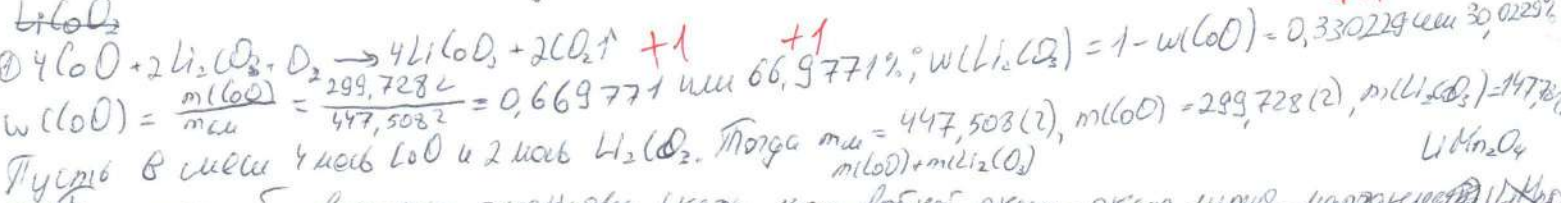 LiCoO₂
① 4CoO + 2Li₂CO₃ + O₂ → 4LiCoO₂ + 2CO₂↑ +1 +1
w(CoO) = m(CoO)/mсм = 299,728г/447,508г = 0,669771 или 66,9771%; w(Li₂CO₃) = 1 - w(CoO) = 0,330229 или 30,0229%
Пусть в смеси 4 моль CoO и 2 моль Li₂CO₃. Тогда mсм = 447,508(г), m(CoO) = 299,728(г), m(Li₂CO₃) = 147,78
m(CoO)+m(Li₂CO₃)
LiMn₂O₄